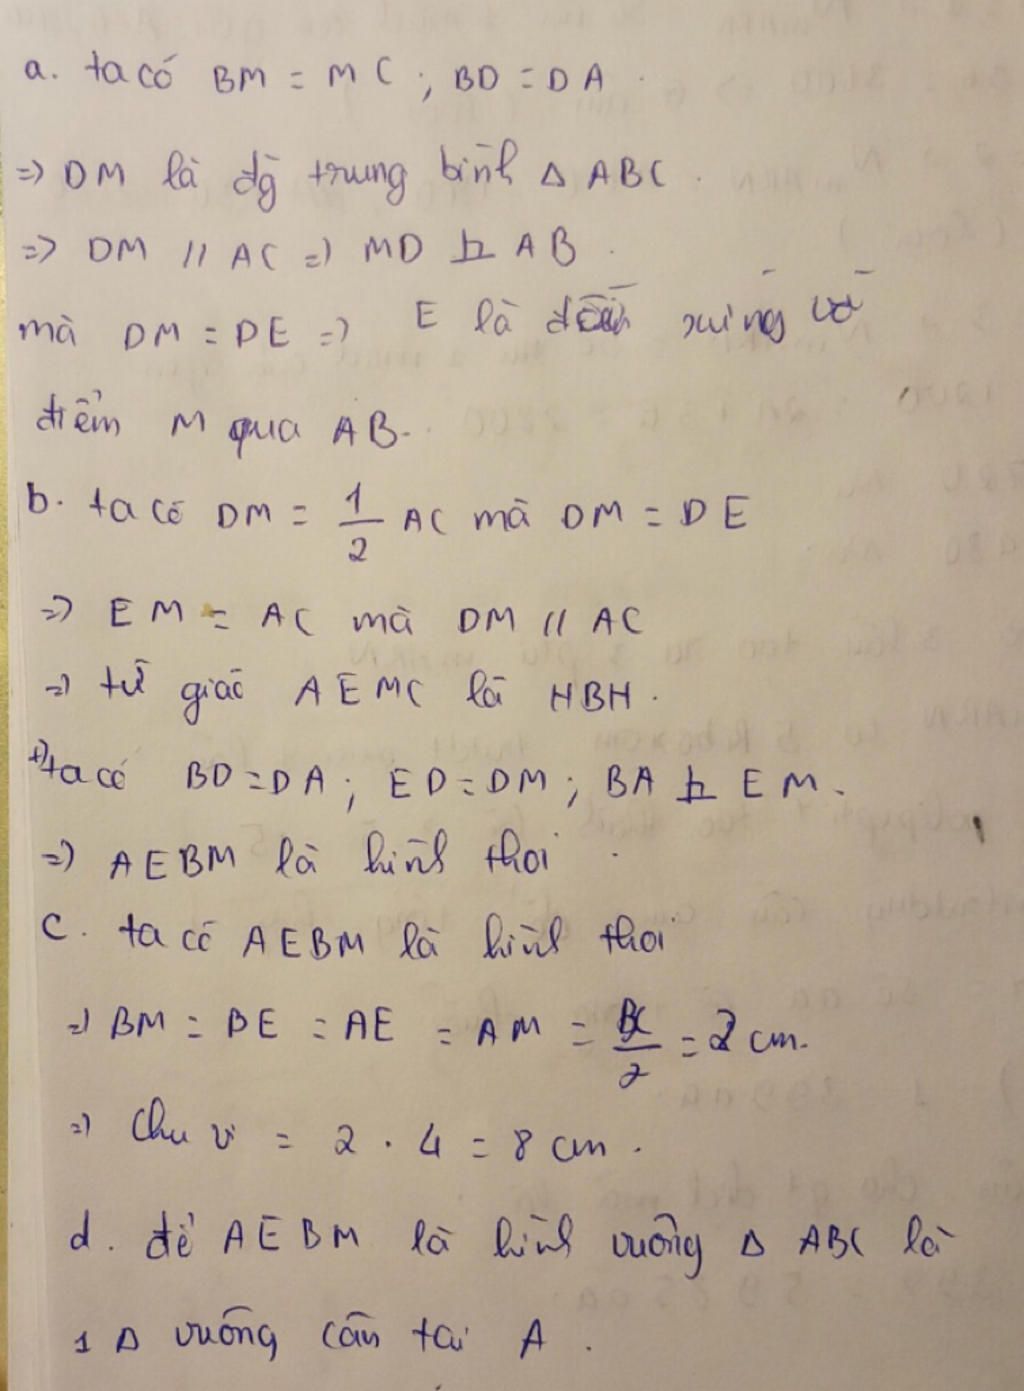 a. ta có BM = MC ; BD = DA .
=> DM là đg trung bình Δ ABC .
=> DM // AC => MD ⊥ AB .
mà DM = DE => E là đối xứng với
điểm M qua AB.
b. ta có DM = 1/2 AC mà DM = DE
=> EM = AC mà DM // AC
=> tứ giác AEMC là HBH .
+) ta có BD = DA ; ED = DM ; BA ⊥ EM .
=> AEBM là hình thoi .
c. ta có AEBM là hình thoi
=> BM = BE = AE = AM = BC/2 = 2 cm.
=> Chu vi = 2 . 4 = 8 cm .
d. để AEBM là hình vuông Δ ABC là
1 Δ vuông cân tại A .